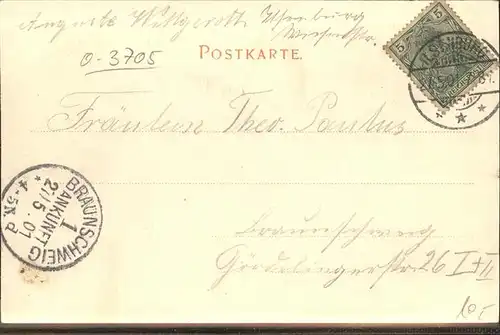 Auguste Wittgeroth Ilsenburg
0-3705
POSTKARTE.
5 5
ILSENBURG
Fräulein Theo. Paulus
BRAUNSCHWEIG
1
ANKUNFT
27/5.01
4-5N.
d
Braunschweig
Gördelingerstr. 26 I+II
10,-